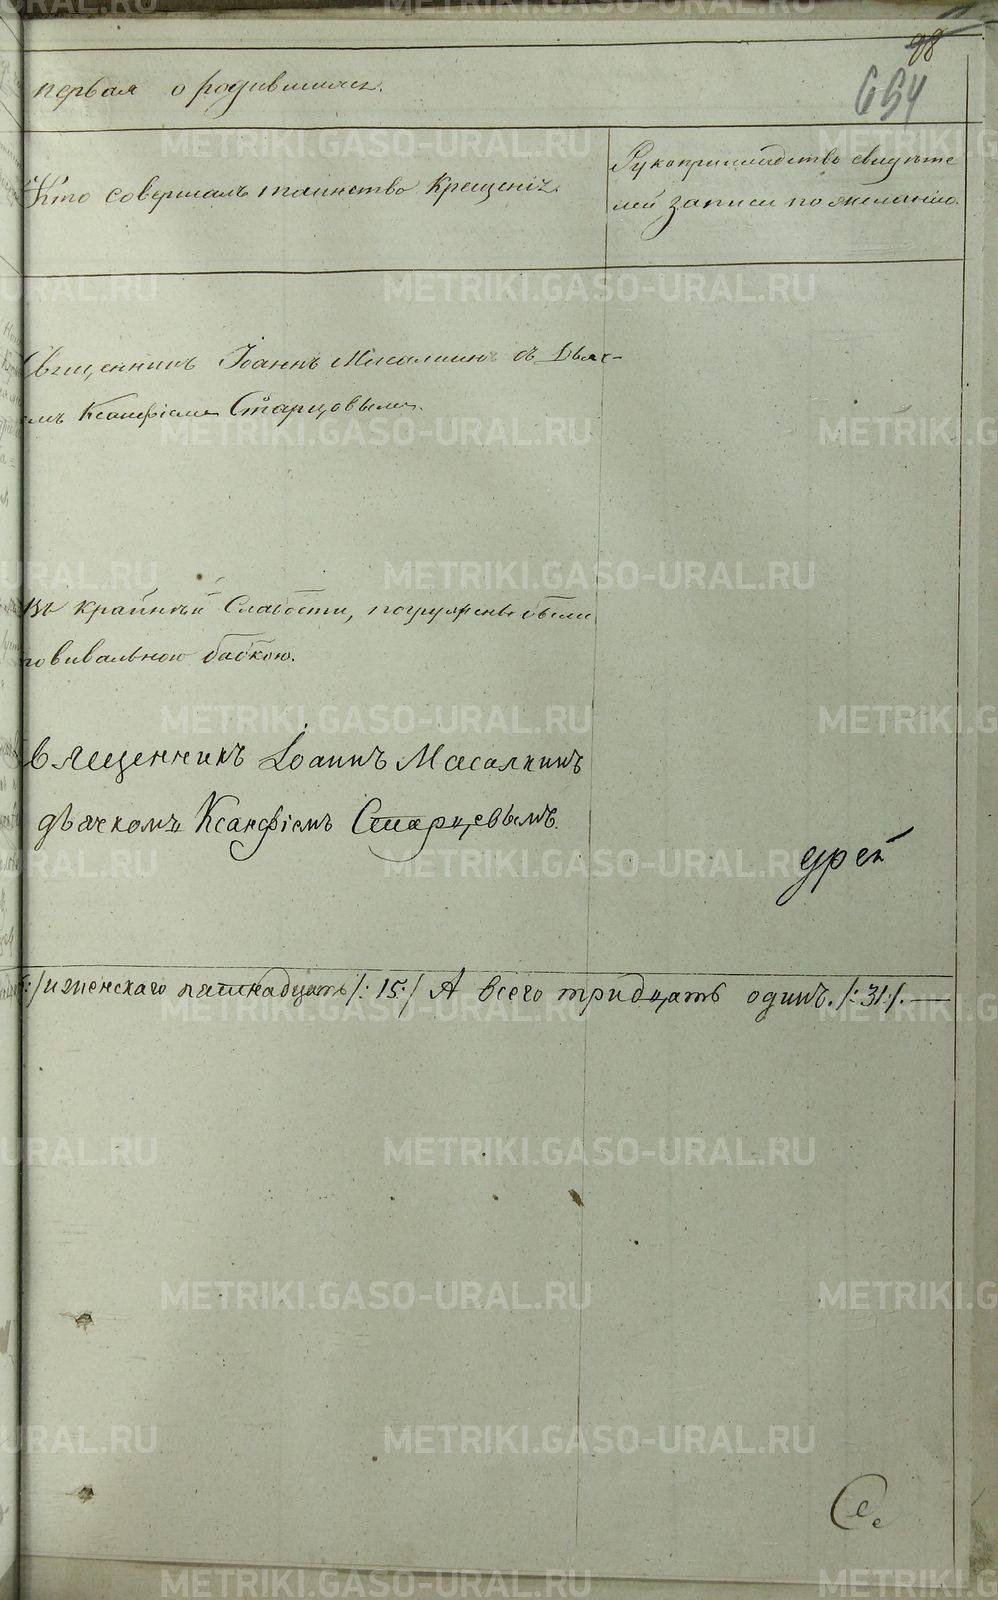 98
654
первая о родившихся.
Кто совершалъ таинство Крещенія.
Рукоприкладство свидѣте
лей записи по желанію.
Священникъ Іоаннъ Масалкинъ съ Дьяч-
комъ Ксанфіемъ Старцовымъ.
Въ крайнѣй слабости, погружены были
повивальною бабкою.
Священникъ Іоаннъ Масалкинъ
дьячкомъ Ксанфіемъ Старцевымъ.
 урей
/и женскаго пятнадцать /:15:/ А всего тридцать одинъ. /:31:/.—
METRIKI.GASO-URAL.RU